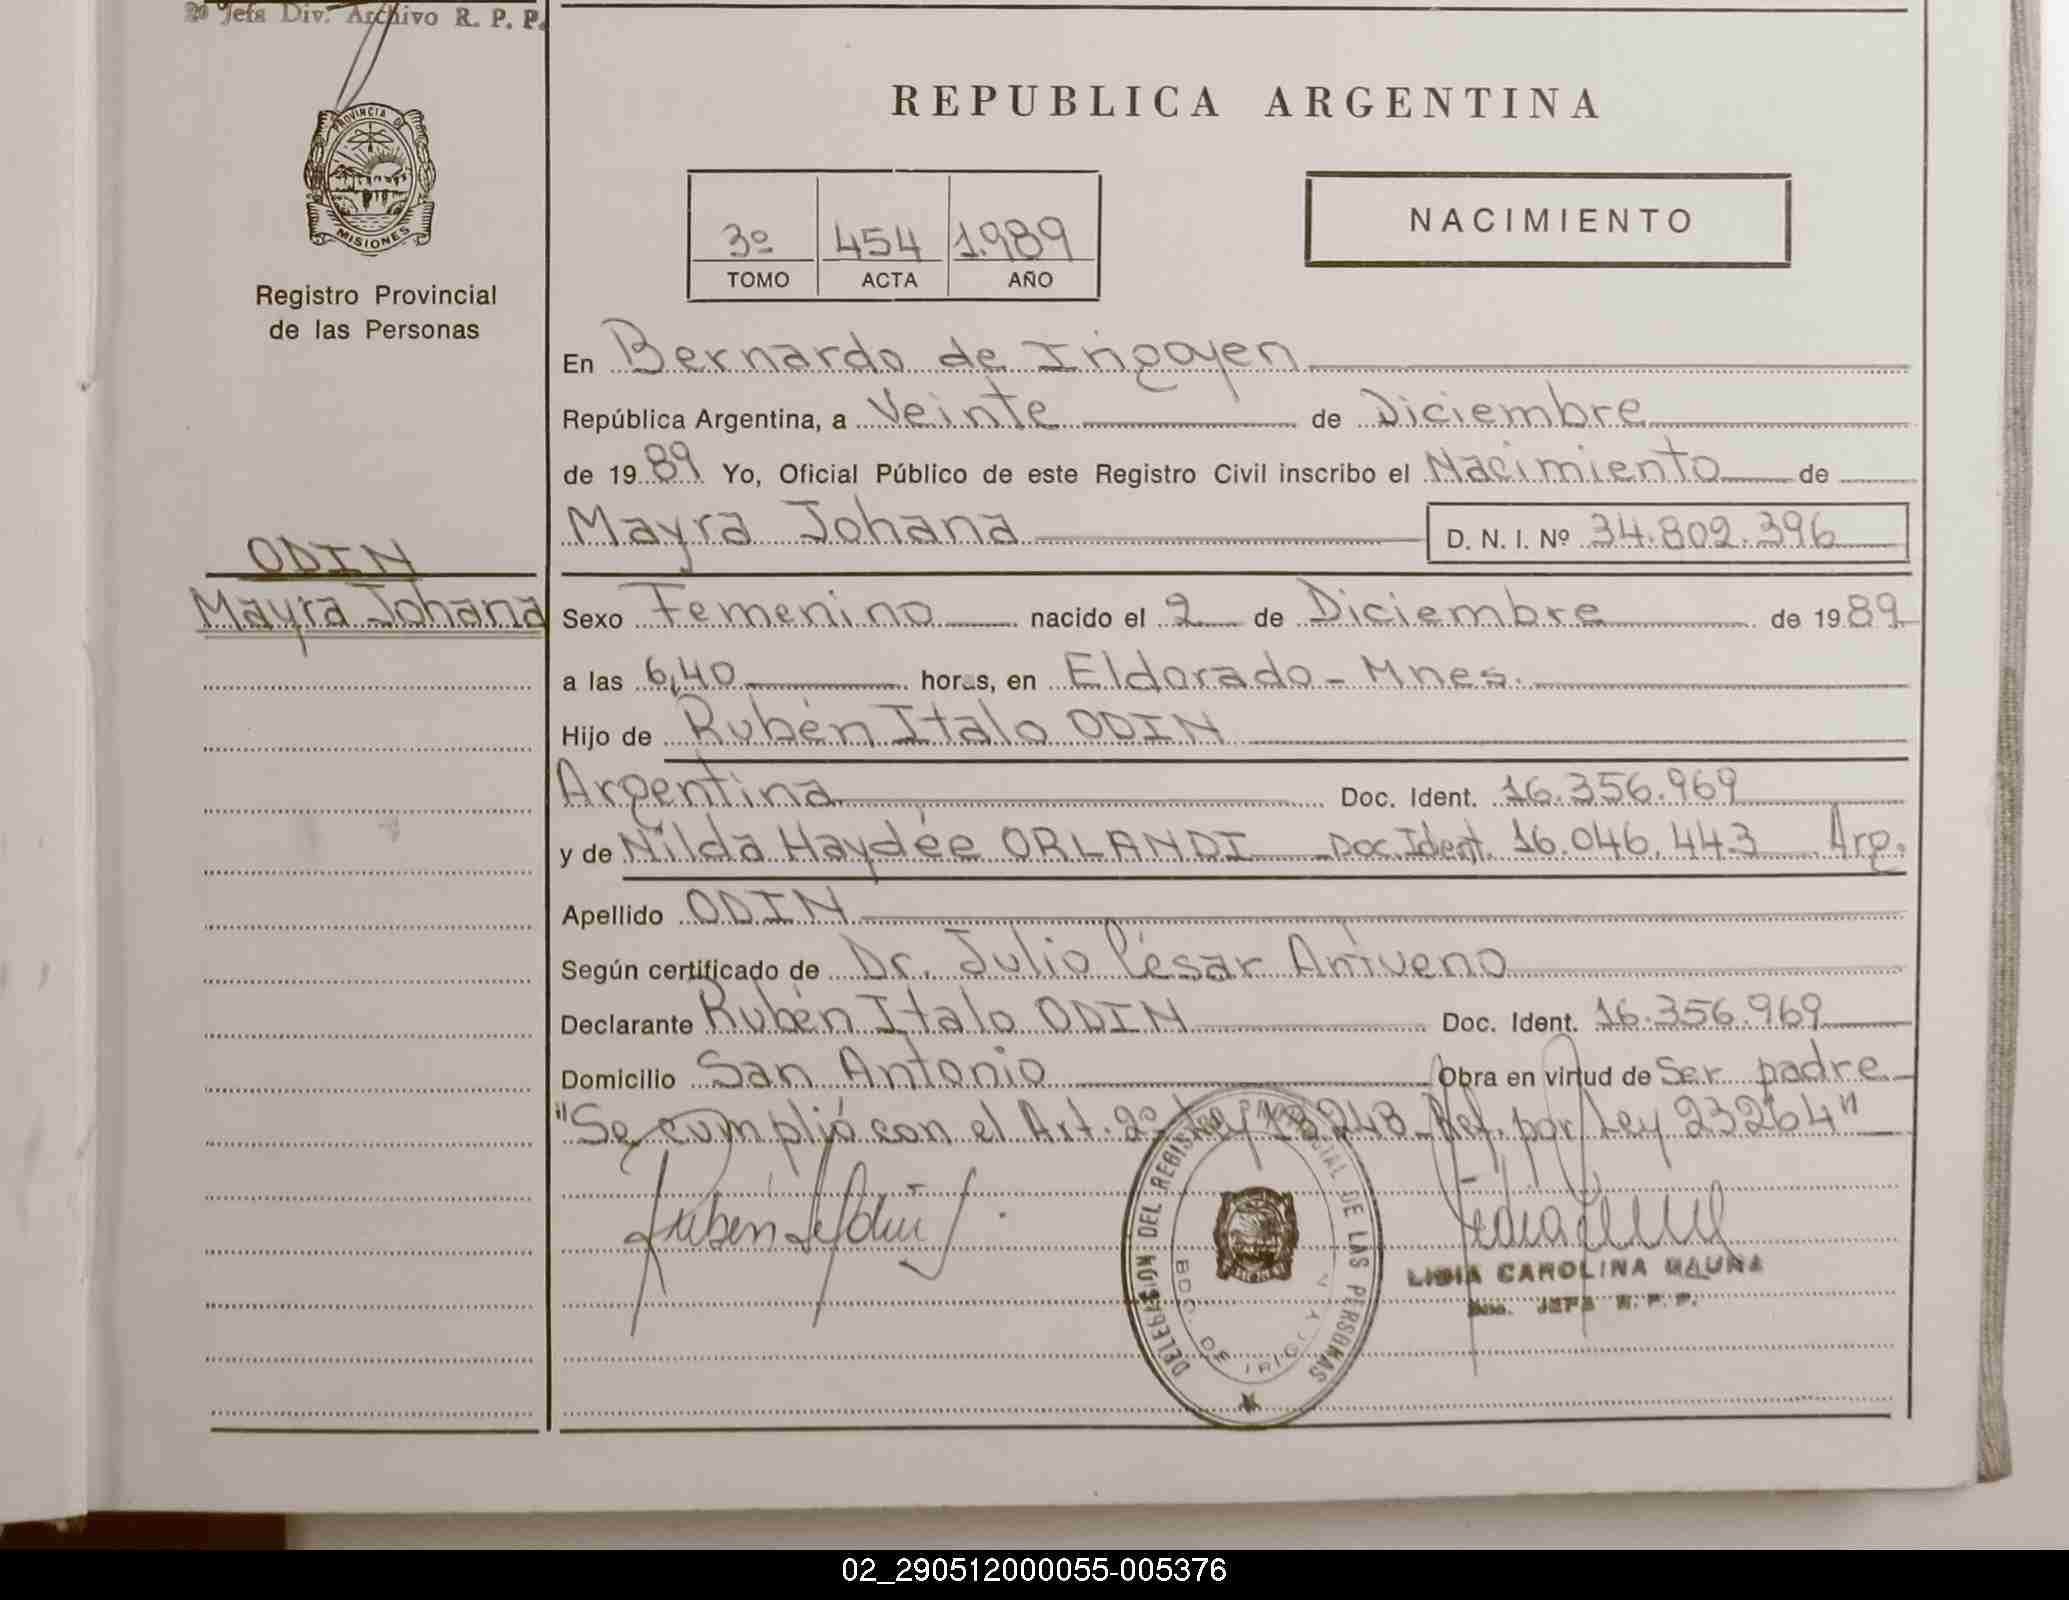 2º Jefa Div. Archivo R. P. P.
PROVINCIA DE
MISIONES
Registro Provincial
de las Personas
ODIN
Mayra Johana
REPUBLICA ARGENTINA
3º 454 1.989
TOMO ACTA AÑO
NACIMIENTO
En Bernardo de Irigoyen
República Argentina, a Veinte de Diciembre
de 19 89 Yo, Oficial Público de este Registro Civil inscribo el Nacimiento de
Mayra Johana D. N. I. Nº 34.802.396
Sexo Femenino nacido el 2 de Diciembre de 19 89
a las 6,40 horas, en Eldorado - Mnes.
Hijo de Rubén Italo ODIN
Argentina Doc. Ident. 16.356.969
y de Nilda Haydée ORLANDI Doc. Ident. 16.046.443 Arg.
Apellido ODIN
Según certificado de Dr. Julio César
Declarante Rubén Italo ODIN Doc. Ident. 16.356.969
Domicilio San Antonio Obra en virtud de Ser padre
"Se cumplió con el Art. 2º Ley 18.248 Ref. por Ley 23264"
DELEGACION DEL REGISTRO PROVINCIAL DE LAS PERSONAS
BDO. DE IRIGOYEN
LIDIA CAROLINA
JEFA R. P. P.
02_290512000055-005376